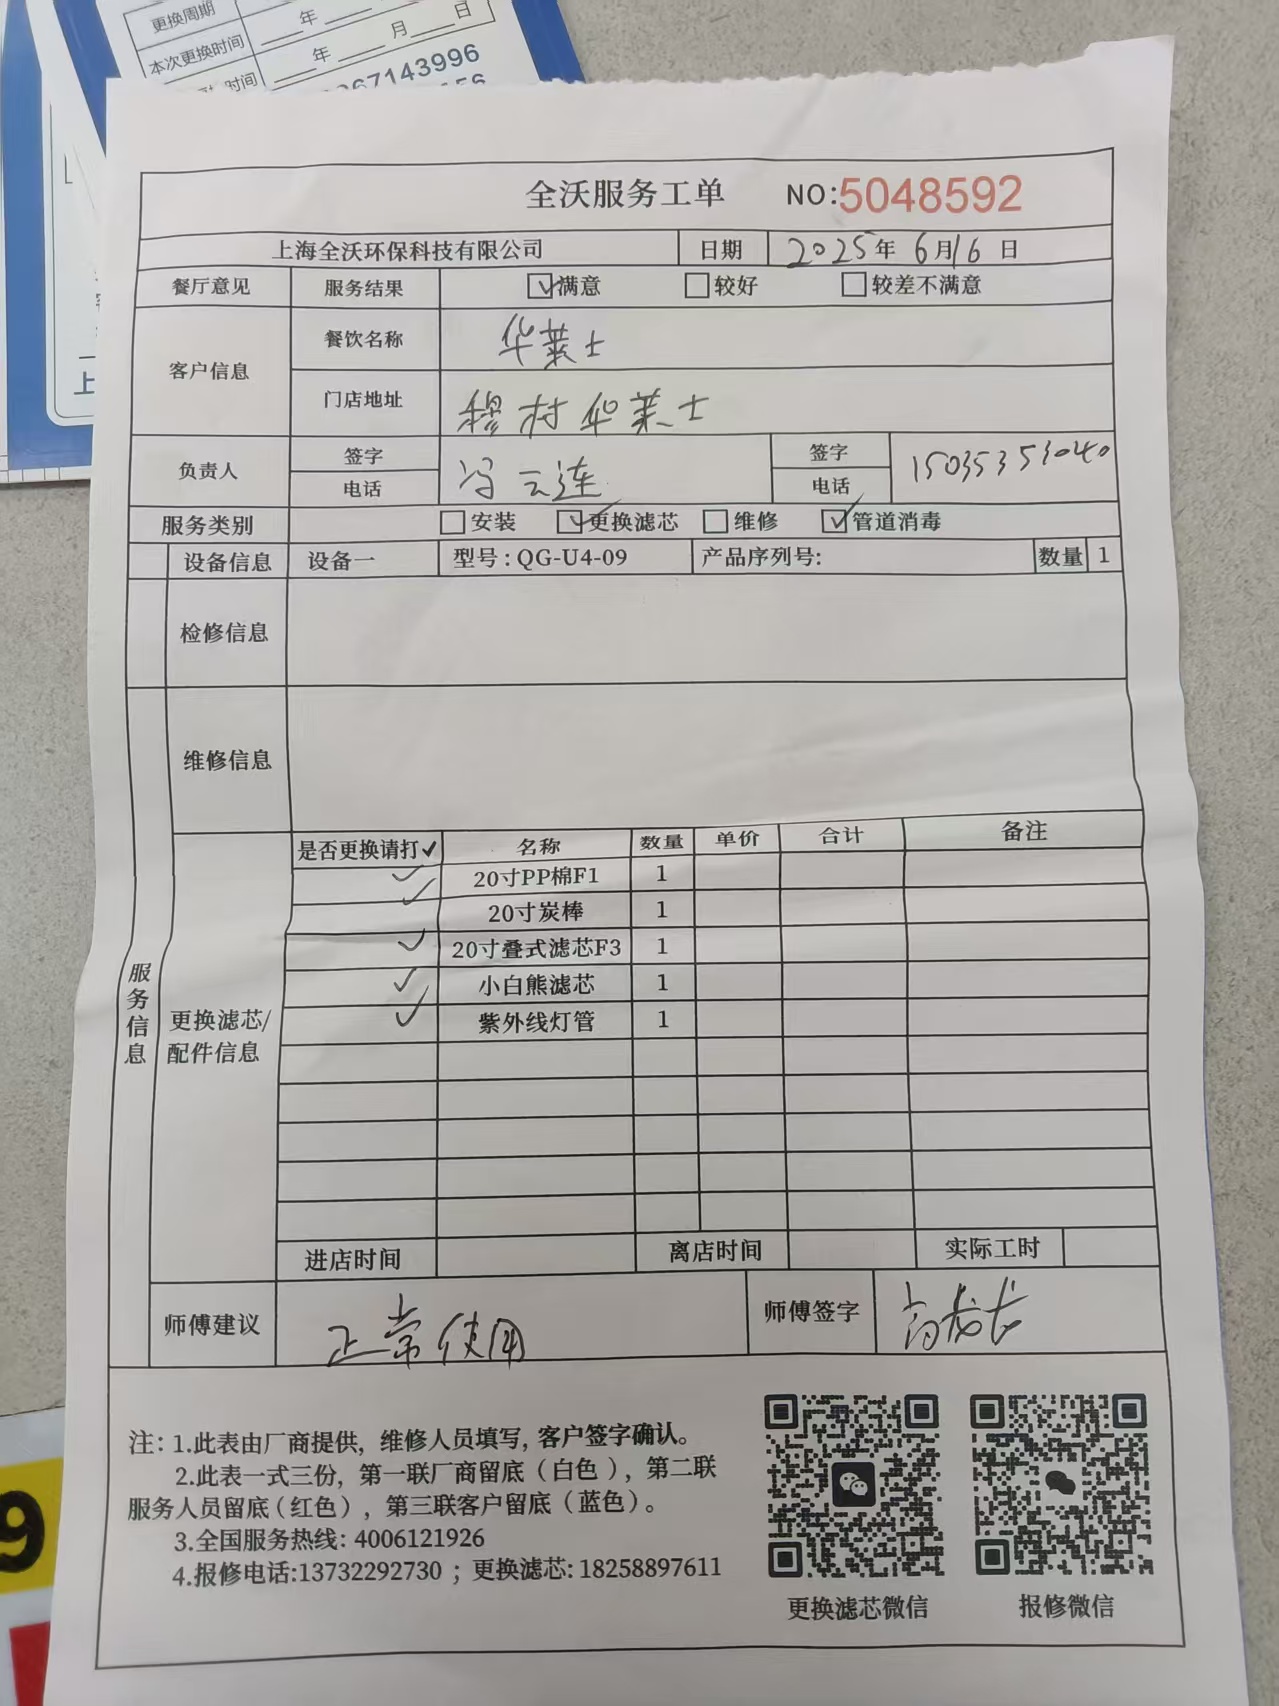 更换周期
本次更换时间 年 月 日
时间 年
67143996
上
9
全沃服务工单 NO:5048592
上海全沃环保科技有限公司 日期 2025年6月16日
餐厅意见 服务结果 满意 较好 较差不满意
客户信息 餐饮名称 华莱士
门店地址 穆村华莱士
负责人 签字 冯云连 签字 15035353040
电话 电话
服务类别 安装 更换滤芯 维修 管道消毒
设备信息 设备一 型号:QG-U4-09 产品序列号: 数量 1
检修信息
维修信息
服务信息
更换滤芯/
配件信息
是否更换请打✓ 名称 数量 单价 合计 备注
✓ 20寸PP棉F1 1
✓ 20寸炭棒 1
✓ 20寸叠式滤芯F3 1
✓ 小白熊滤芯 1
✓ 紫外线灯管 1
进店时间 离店时间 实际工时
师傅建议 正常使用 师傅签字
注:1.此表由厂商提供,维修人员填写,客户签字确认。
2.此表一式三份,第一联厂商留底(白色),第二联
服务人员留底(红色),第三联客户留底(蓝色)。
3.全国服务热线:4006121926
4.报修电话:13732292730;更换滤芯:18258897611
更换滤芯微信 报修微信